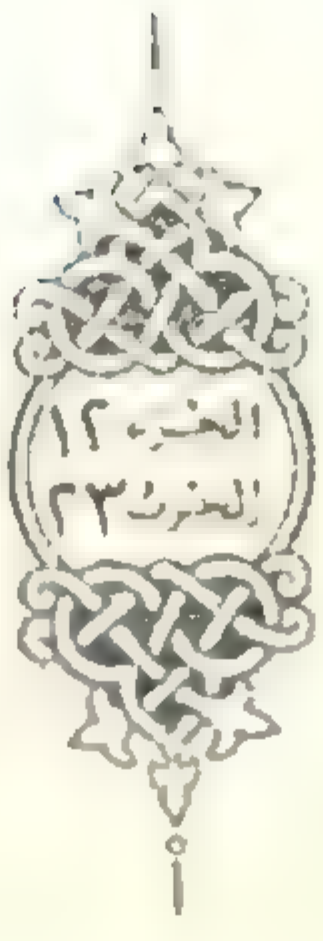 الجزء ١٢
الحزب ٢٣